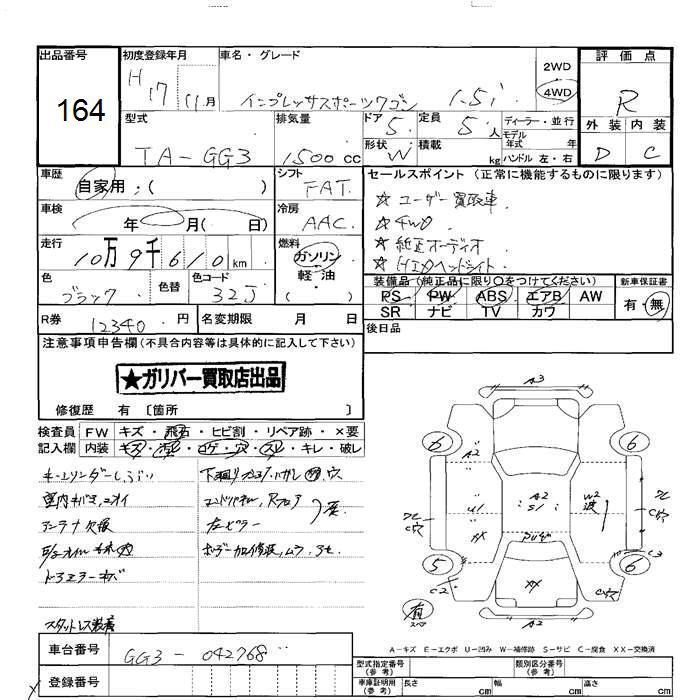 出品番号
164
初度登録年月
H 17 11月
車名・グレード
インプレッサスポーツワゴン 1.5i
2WD
4WD
評価点
R
外装 内装
D C
型式
TA-GG3
排気量
1500 cc
ドア 5
定員 5 人
形状 W
積載 kg
ディーラー・並行
モデル
年式 年
ハンドル 左・右
車歴
自家用;( )
シフト
FAT
車検
年 月( 日)
冷房
AAC
走行
10万9千610 km
燃料
ガソリン
軽油
( )
色
ブラック
色替
色コード
32J
R券
12340 円
名変期限 月 日
セールスポイント(正常に機能するものに限ります)
☆ユーザー買取車
☆4WD
☆純正オーディオ
☆HIDヘッドライト
装備品(純正品に限り○をつけてください)
PS PW ABS エアB AW
SR ナビ TV カワ
新車保証書
有・無
後日品
注意事項申告欄(不具合内容等は具体的に記入して下さい)
★ガリバー買取店出品
修復歴 有 〔箇所 〕
検査員
記入欄
FW キズ・飛石・ヒビ割・リペア跡・×要
内装 キズ・汚レ・コゲ・穴・スレ・キレ・破レ
キーシリンダーしぶい
室内キバミ、ニオイ
アンテナ欠損
ドアミラーキズ
スタットレス装着
左ピラー
A3
6 6
A2
U1
A2
S1
W2
波
C穴
C穴
XX
C3
5 6
C2
XX
C穴
有
スペア
A2
A-キズ E-エクボ U-凹み W-補修跡 S-サビ C-腐食 XX-交換済
車台番号
GG3-042768
登録番号
型式指定番号
(参考)
類別区分番号
(参考)
車庫証明用
(参考)
長さ cm 幅 cm 高さ cm